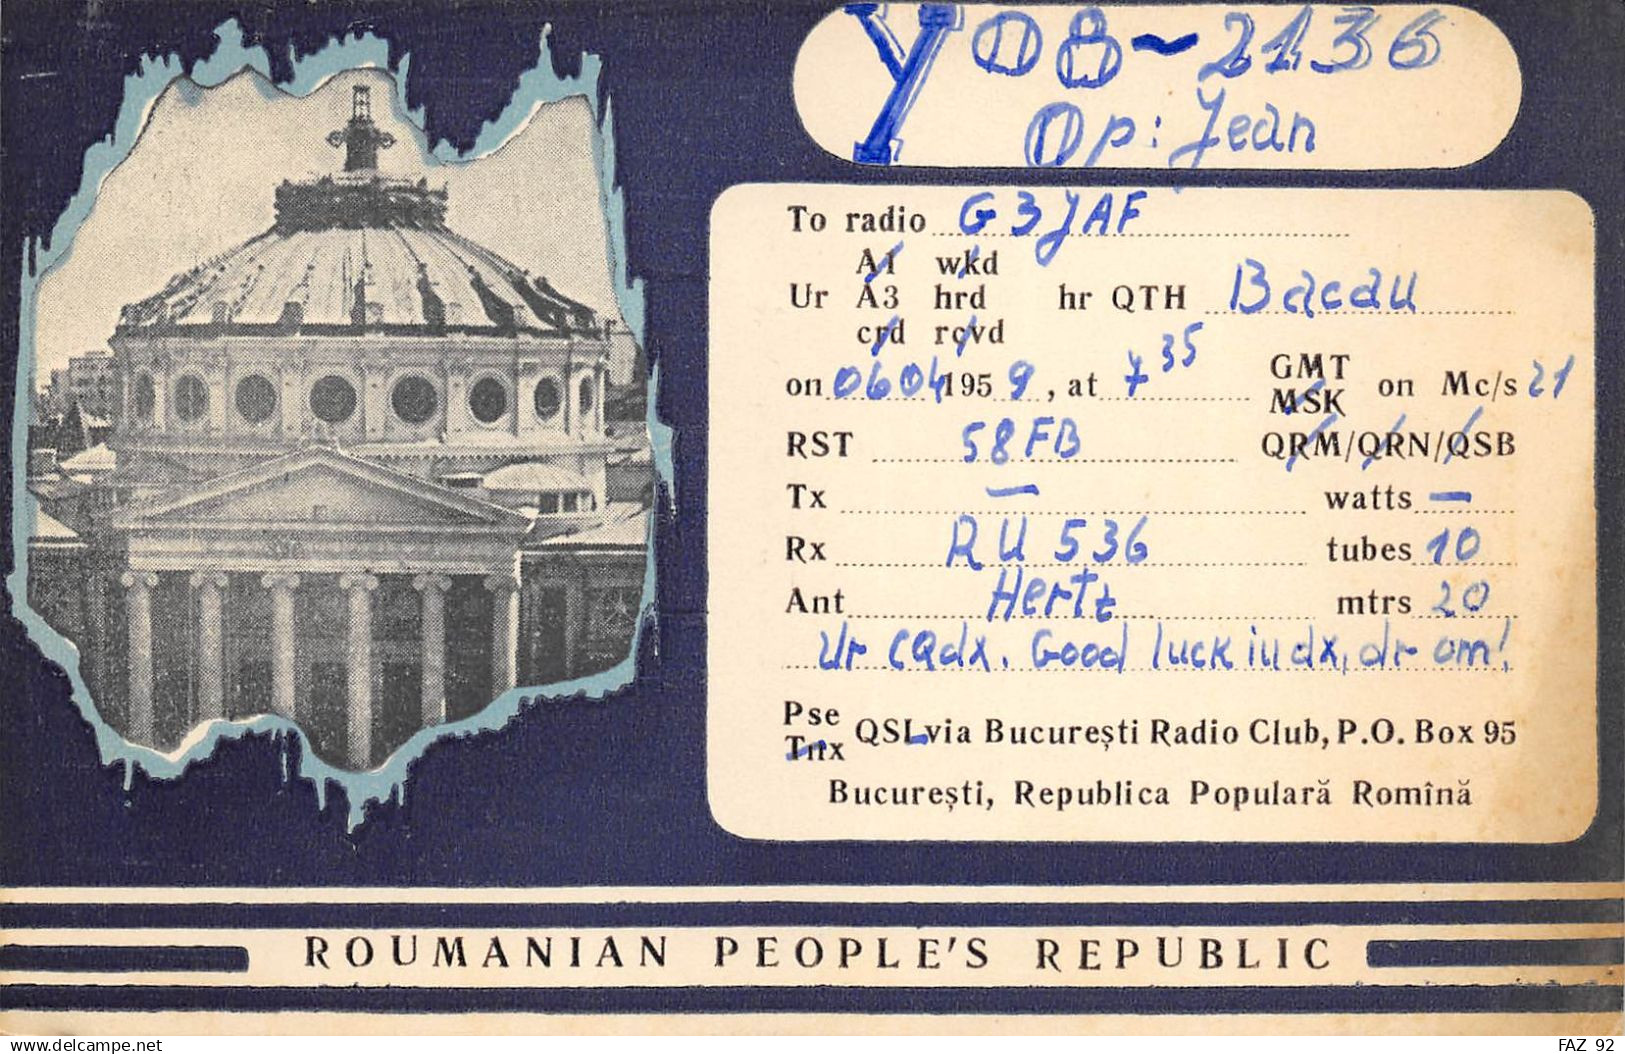 YO8-2136
Op: Jean
To radio G3JAF
A1 wkd
Ur A3 hrd hr QTH Bacau
crd rcvd
on 06 04 1959, at 7 35 GMT MSK on Mc/s 21
RST 58 FB QRM/QRN/QSB
Tx — watts —
Rx RU 536 tubes 10
Ant Hertz mtrs 20
Ur CQdx. Good luck iu dx, dr om!
Pse
Tnx QSL via București Radio Club, P.O. Box 95
București, Republica Populară Romînă
ROUMANIAN PEOPLE'S REPUBLIC
delcampe.net
FAZ 92